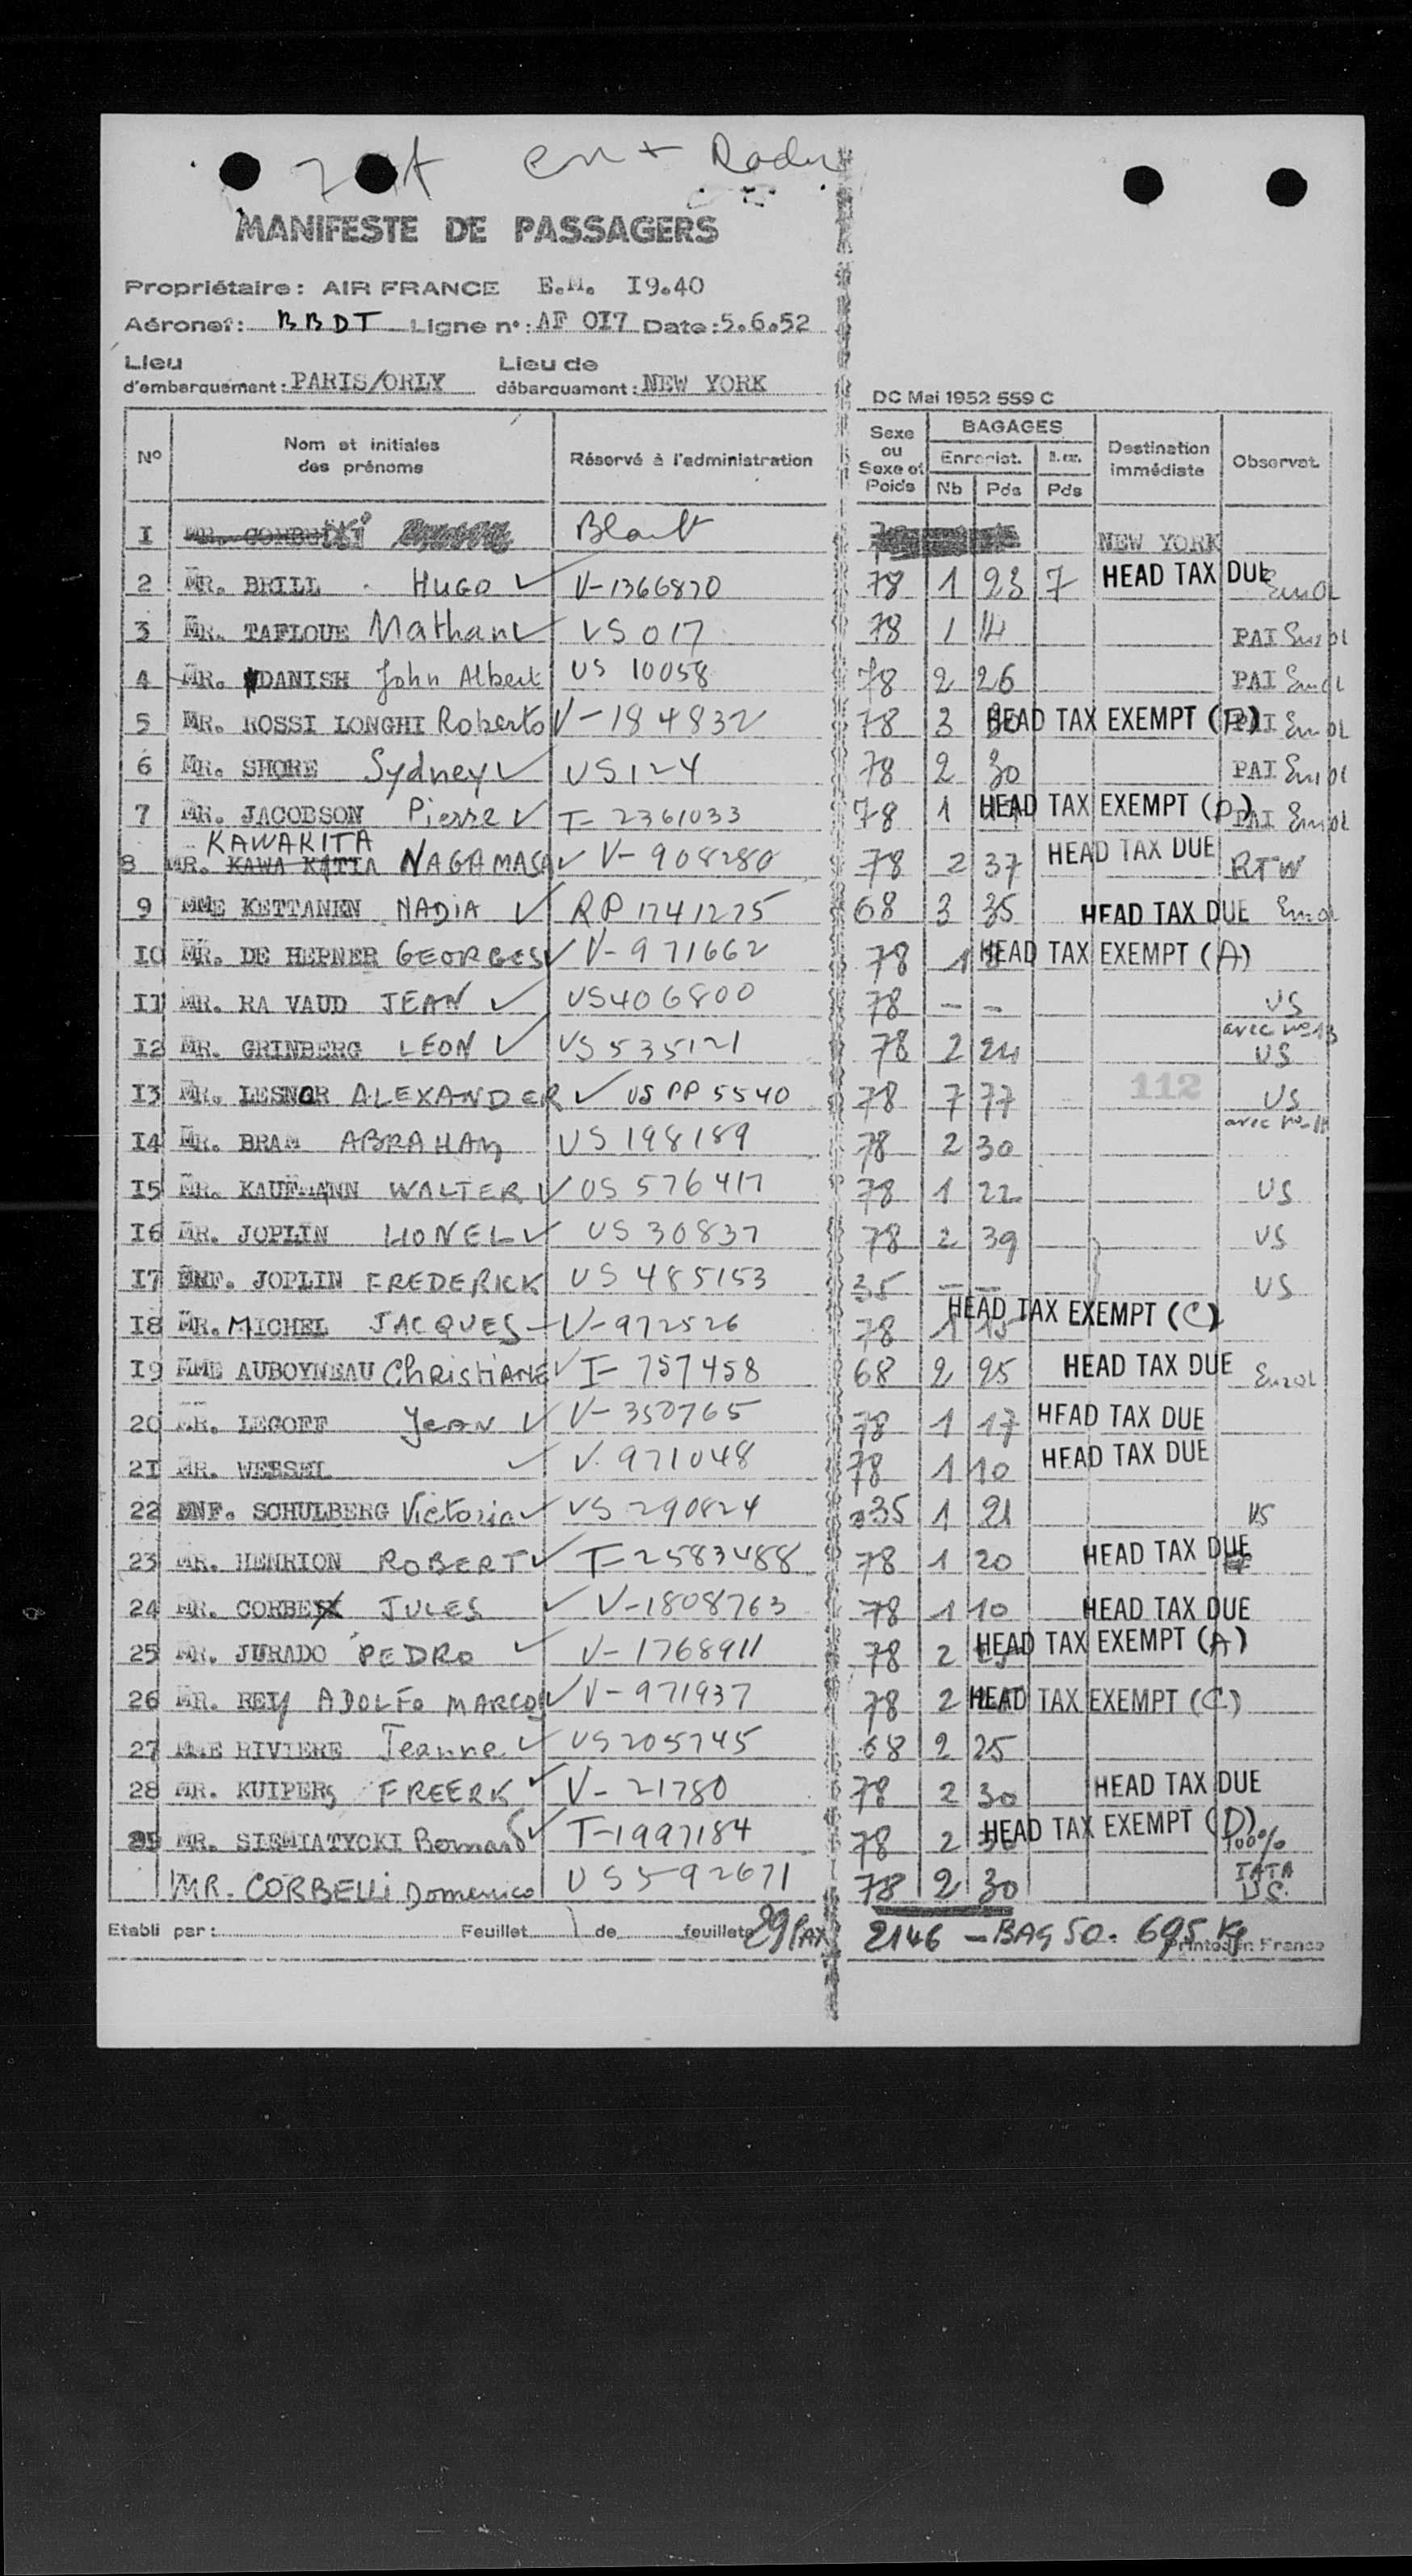 MANIFESTE DE PASSAGERS
Propriétaire: AIR FRANCE E.M. I9.40
Aéronef: BBDT Ligne n°: AF OI7 Date: 5.6.52
Lieu d'embarquement: PARIS/ORLY Lieu de débarquement: NEW YORK
DC Mai 1952 559 C
N° Nom et initiales des prénoms Réservé à l'administration Sexe ou Sexe et Poids BAGAGES Enregist. Nb Pds Pds Destination immédiate Observat.
I NEW YORK
2 MR. BRILL HUGO V-1366870 78 1 23 7 HEAD TAX DUE
3 MR. TAFLOUE Nathan US 017 78 1 14 PAI
4 MR. DANISH John Albert US 10058 78 2 26 PAI
5 MR. ROSSI LONGHI Roberto V-184832 78 3 HEAD TAX EXEMPT PAI
6 MR. SHORE Sydney US124 78 2 30 PAI
7 MR. JACOBSON Pierre T-2361033 78 1 HEAD TAX EXEMPT (D) PAI
KAWAKITA
8 MR. KAWA KATIA NAGAMASA V-908280 78 2 37 HEAD TAX DUE RTW
9 MME KETTANEN NADIA RP 1741275 68 3 35 HEAD TAX DUE
IO MR. DE HEPNER GEORGES V-971662 78 1 HEAD TAX EXEMPT (A)
II MR. RA VAUD JEAN US406800 78 - - US
avec no 13
I2 MR. GRINBERG LEON US 535121 78 2 24 US
I3 MR. LESNOR ALEXANDER US PP 5540 78 7 77 112 US
avec no 11
I4 MR. BRAM ABRAHAM US 198189 78 2 30
I5 MR. KAUFMANN WALTER US 576417 78 1 22 US
I6 MR. JOPLIN LIONEL US 30837 78 2 39 US
I7 ENF. JOPLIN FREDERICK US 485153 35 - - US
I8 MR. MICHEL JACQUES V-972526 78 1 15 HEAD TAX EXEMPT (C)
I9 MME AUBOYNEAU CHRISTIANE I-757458 68 2 25 HEAD TAX DUE
20 MR. LEGOFF JEAN V-350765 78 1 17 HEAD TAX DUE
2I MR. WESSEL V-971048 78 1 10 HEAD TAX DUE
22 ENF. SCHULBERG Victoria US 290824 35 1 21 US
23 MR. HENRION ROBERT T-2583488 78 1 20 HEAD TAX DUE
24 MR. CORBE JULES V-1808763 78 1 10 HEAD TAX DUE
25 MR. JURADO PEDRO V-1768911 78 2 HEAD TAX EXEMPT (A)
26 MR. REY ADOLFO MARCOS V-971937 78 2 HEAD TAX EXEMPT (C)
27 MME RIVIERE Jeanne US205745 68 2 25
28 MR. KUIPERS FREERK V-21780 78 2 30 HEAD TAX DUE
MR. SIEMIATYCKI Bernard T-1997184 78 2 HEAD TAX EXEMPT (D) 100%
MR. CORBELLI Domenico US 592671 78 2 30 IATA US.
Etabli par: Feuillet 1 de feuillets 29 PAX 2146 - BAG 50. 695 Kg Printed in France